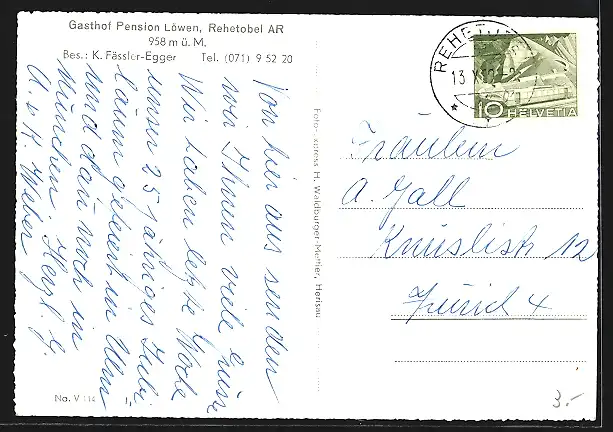 Gasthof Pension Löwen, Rehetobel AR
958 m ü. M.
Bes.: K. Fässler-Egger Tel. (071) 9 52 20
Von hier aus senden
wir Ihnen viele Grüsse
Wir haben letzte Woche
unser 25 jähriges Jubi
läum gefeiert in Ulm
und dann noch in
München. Herzl. G.
A. u. H. Weber
No. V 114
Foto-Express H. Waldburger-Mettler, Herisau
REHETOBEL
13. X
10 HELVETIA
Fräulein
A. Gall
Knüslistr 12
Zürich 4
3.-